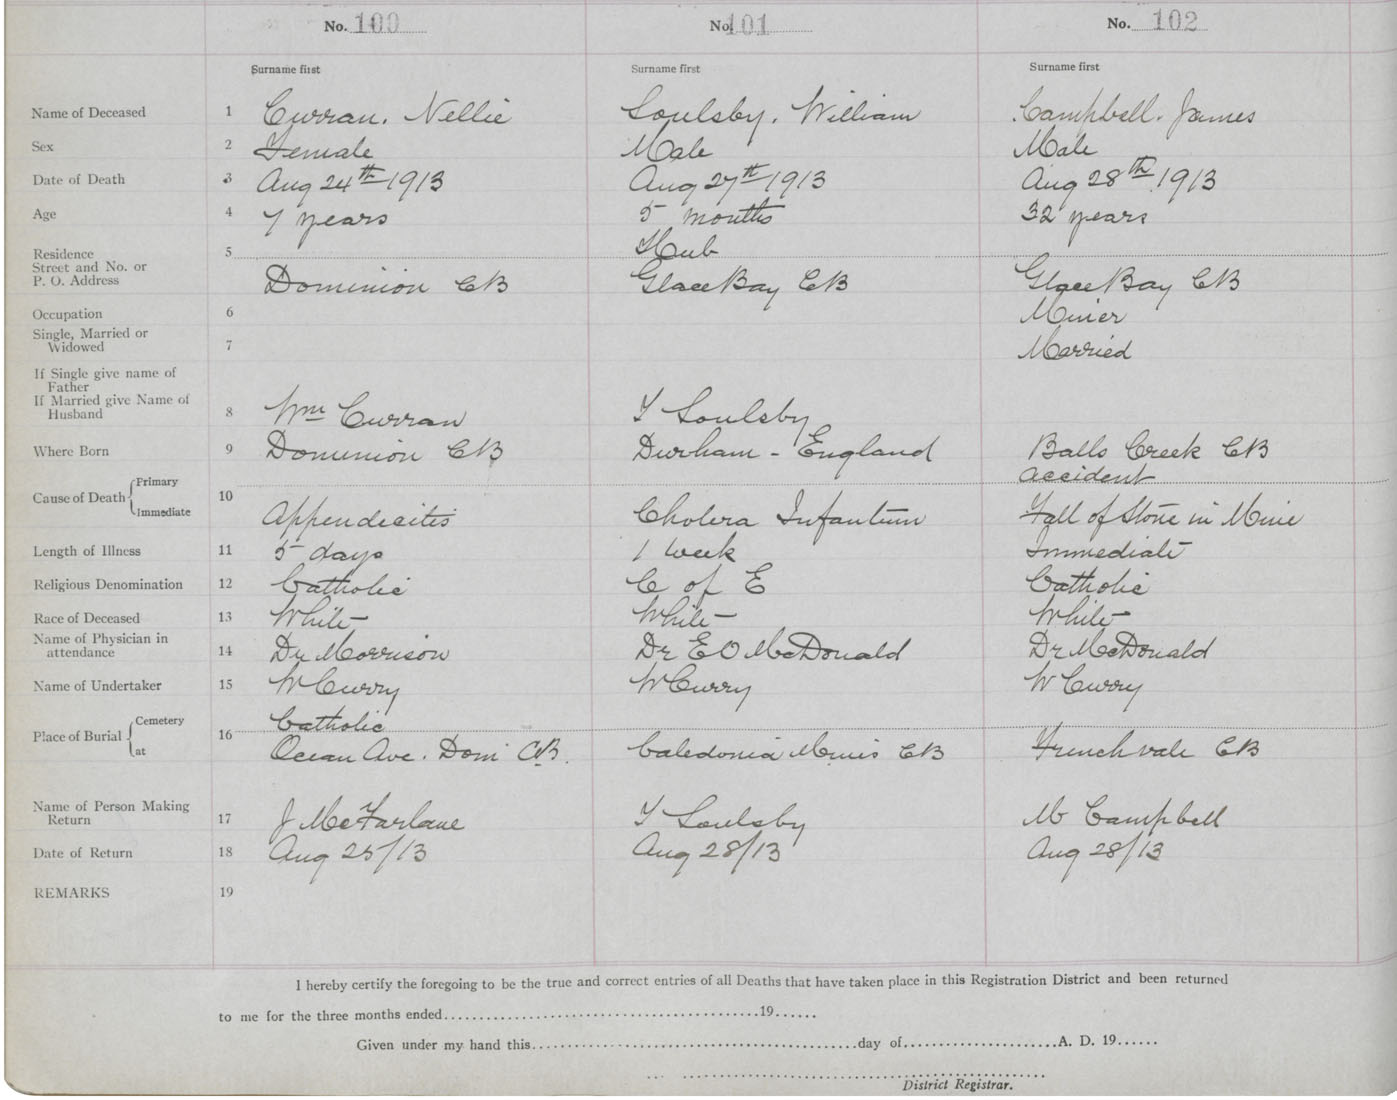 No. 100 No. 101 No. 102
Surname first Surname first Surname first
Name of Deceased 1 Curran. Nellie Soulsby. William Campbell. James
Sex 2 Female Male Male
Date of Death 3 Aug 24th 1913 Aug 27th 1913 Aug 28th 1913
Age 4 7 years 5 months 32 years
Residence 5 Hub
Street and No. or
P. O. Address Dominion CB Glace Bay CB Glace Bay CB
Occupation 6 Miner
Single, Married or
Widowed 7 Married
If Single give name of
Father
If Married give Name of
Husband 8 Wm Curran T Soulsby
Where Born 9 Dominion CB Durham - England Balls Creek CB
Cause of Death { Primary 10 accident
Immediate Appendicitis Cholera Infantum Fall of Stone in Mine
Length of Illness 11 5 days 1 week Immediate
Religious Denomination 12 Catholic C of E Catholic
Race of Deceased 13 White White White
Name of Physician in
attendance 14 Dr Morrison Dr E O McDonald Dr McDonald
Name of Undertaker 15 W Curry W Curry W Curry
Place of Burial { Cemetery 16 Catholic
at Ocean Ave. Dom CB. Caledonia Mines CB Frenchvale CB
Name of Person Making
Return 17 J McFarlane T Soulsby M Campbell
Date of Return 18 Aug 25/13 Aug 28/13 Aug 28/13
REMARKS 19
I hereby certify the foregoing to be the true and correct entries of all Deaths that have taken place in this Registration District and been returned
to me for the three months ended..........19......
Given under my hand this..........day of..........A. D. 19......
District Registrar.